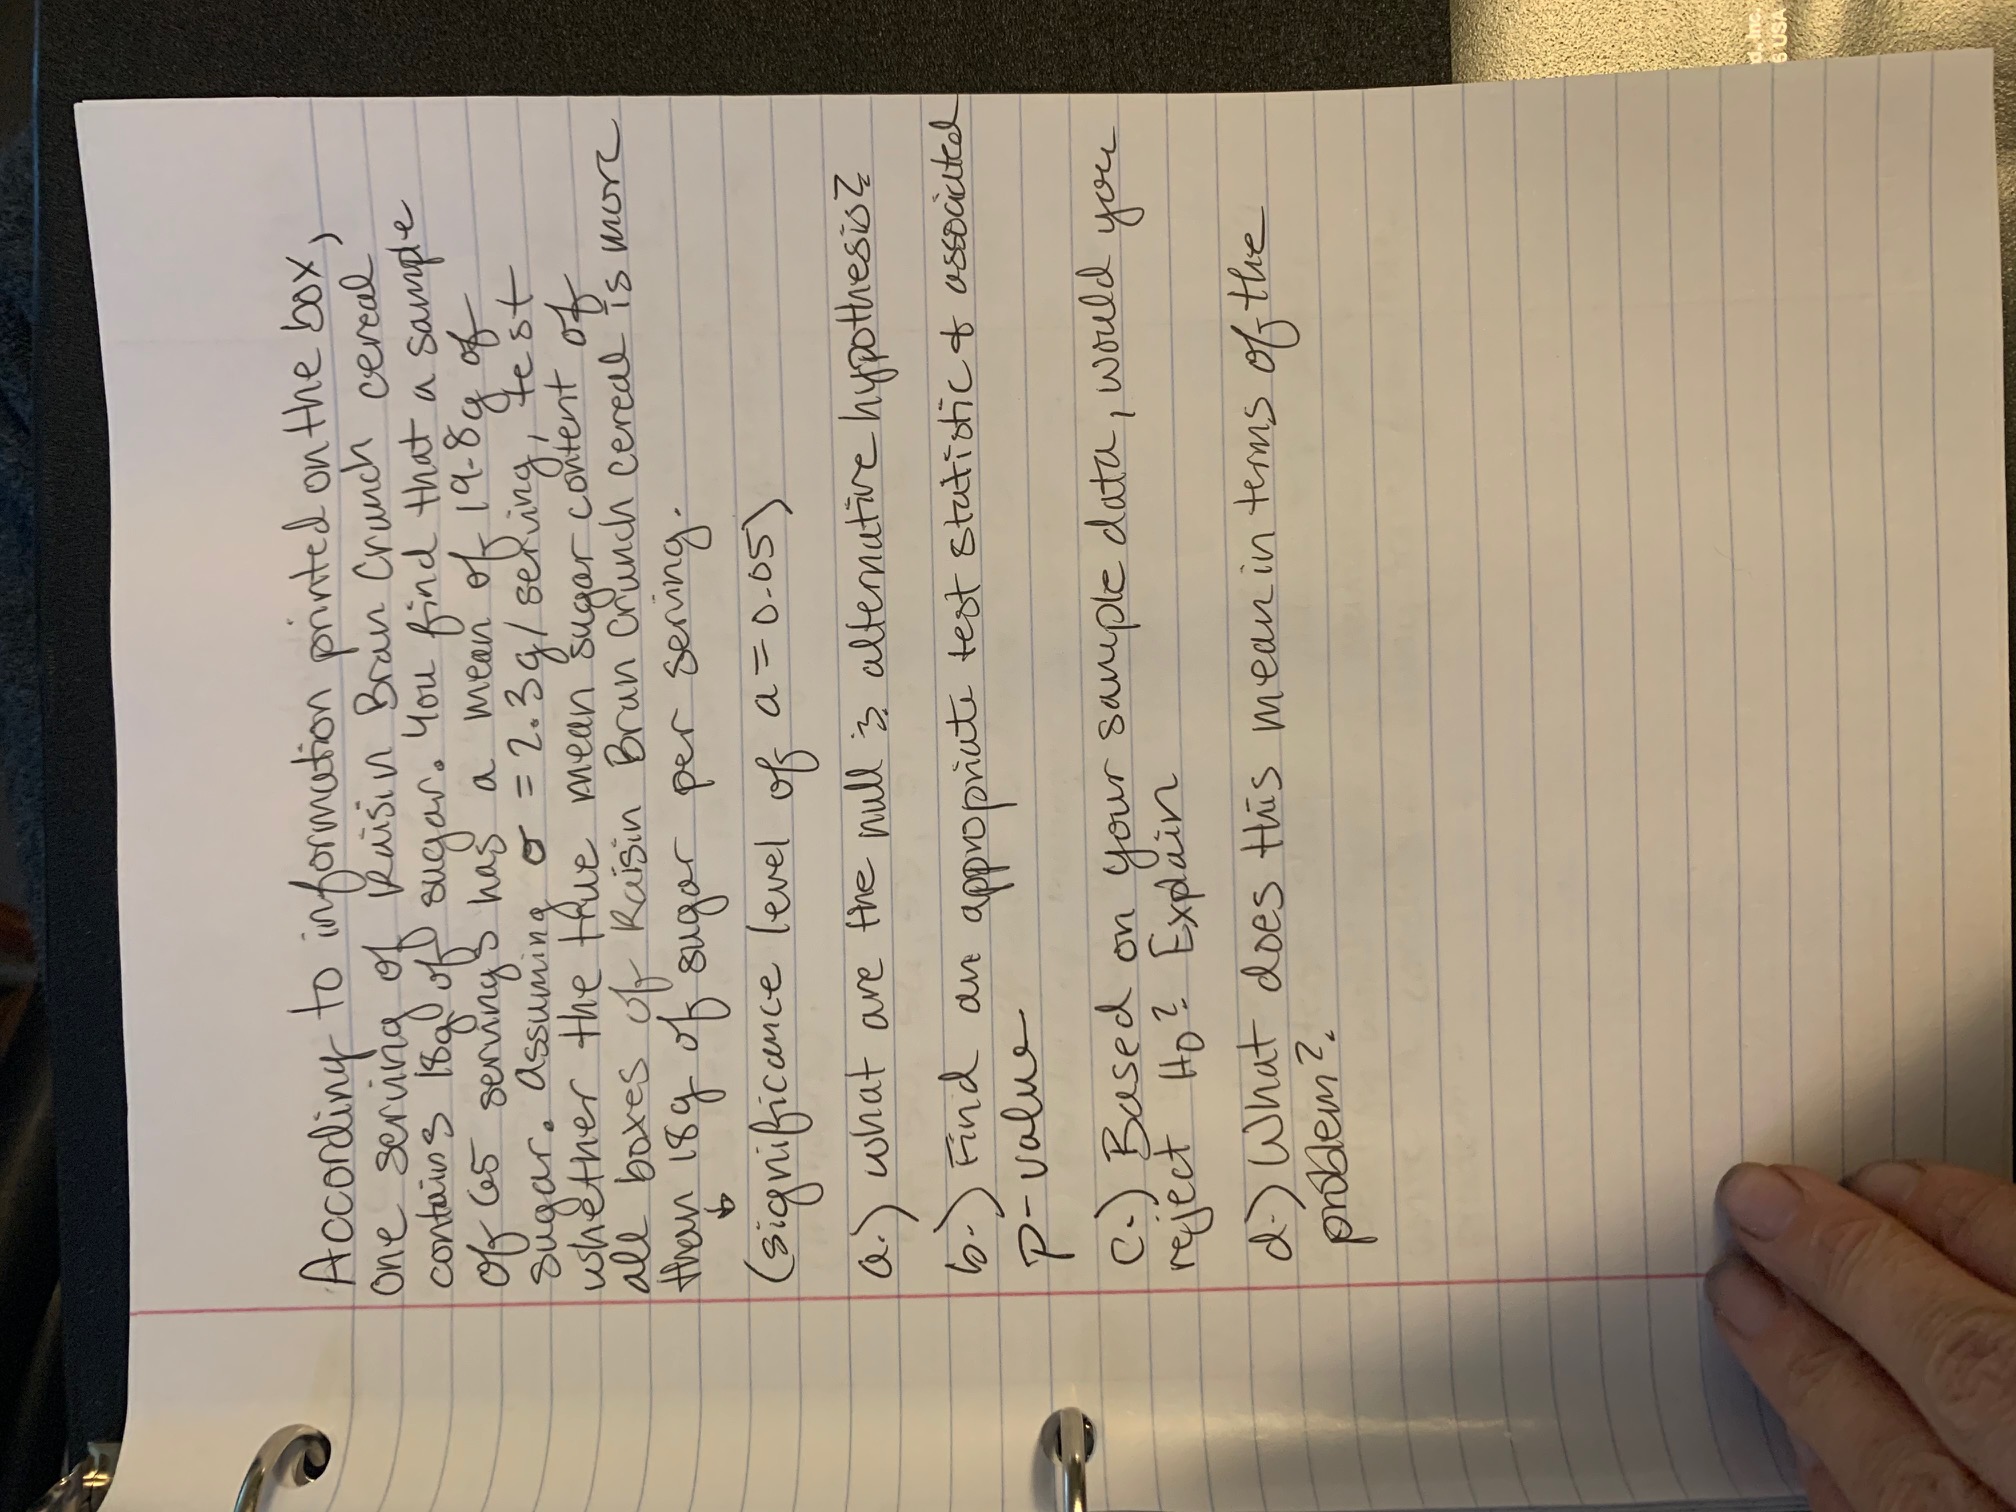 According to information printed on the box,
one serving of Raisin Bran Crunch cereal
contains 18g of sugar. You find that a sample
of 65 servings has a mean of 19.8g of
sugar. Assuming σ = 2.3g/serving, test
whether the true mean sugar content of
all boxes of Raisin Bran Crunch cereal is more
than 18g of sugar per serving.
(significance level of a=0.05)
a.) what are the null & alternative hypothesis?
b.) Find an appropriate test statistic & associated
p-value
c.) Based on your sample data, would you
reject H0? Explain
d.) What does this mean in terms of the
problem?
Inc.
6 USA